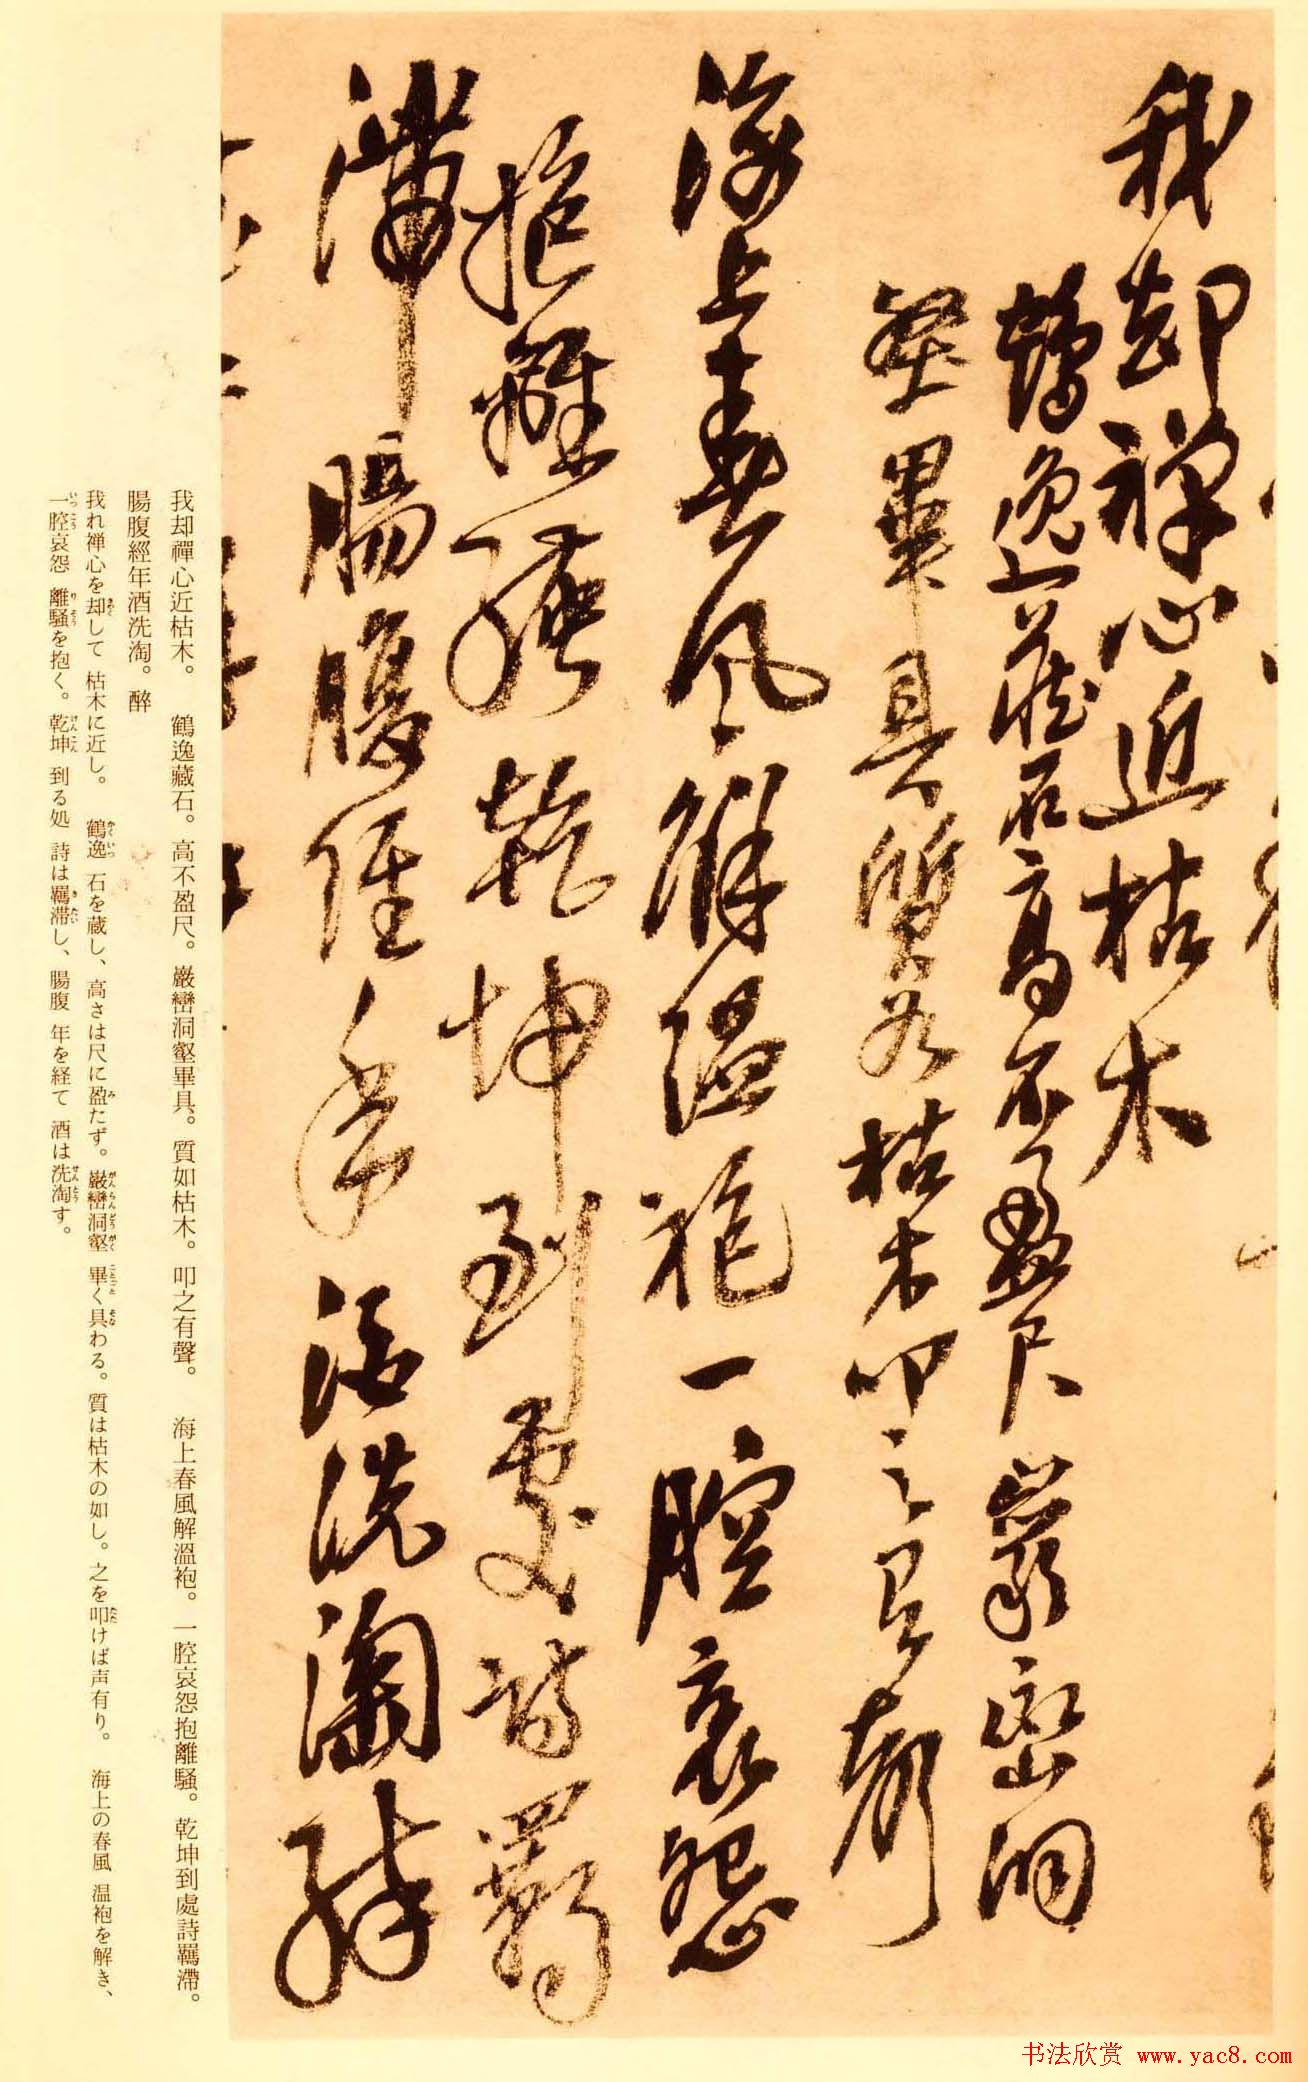 我却禪心近枯木
鶴逸藏石高不盈尺巖巒洞
壑畢具質如枯木叩之有聲
海上春風解溫袍一腔哀怨
抱離騷乾坤到處詩羈
滯腸腹經年酒洗淘醉
我却禪心近枯木。　鶴逸藏石。高不盈尺。巖巒洞壑畢具。質如枯木。叩之有聲。　海上春風解溫袍。一腔哀怨抱離騷。乾坤到處詩羈滯。
腸腹經年酒洗淘。醉
我れ禅心を却して 枯木に近し。　鶴逸 石を蔵し、高さは尺に盈たず。巖巒洞壑 畢く具わる。質は枯木の如し。之を叩けば声有り。　海上の春風 温袍を解き、
一腔哀怨 離騷を抱く。乾坤 到る処 詩は羈滞し、腸腹 年を経て 酒は洗淘す。
书法欣赏 www.yac8.com